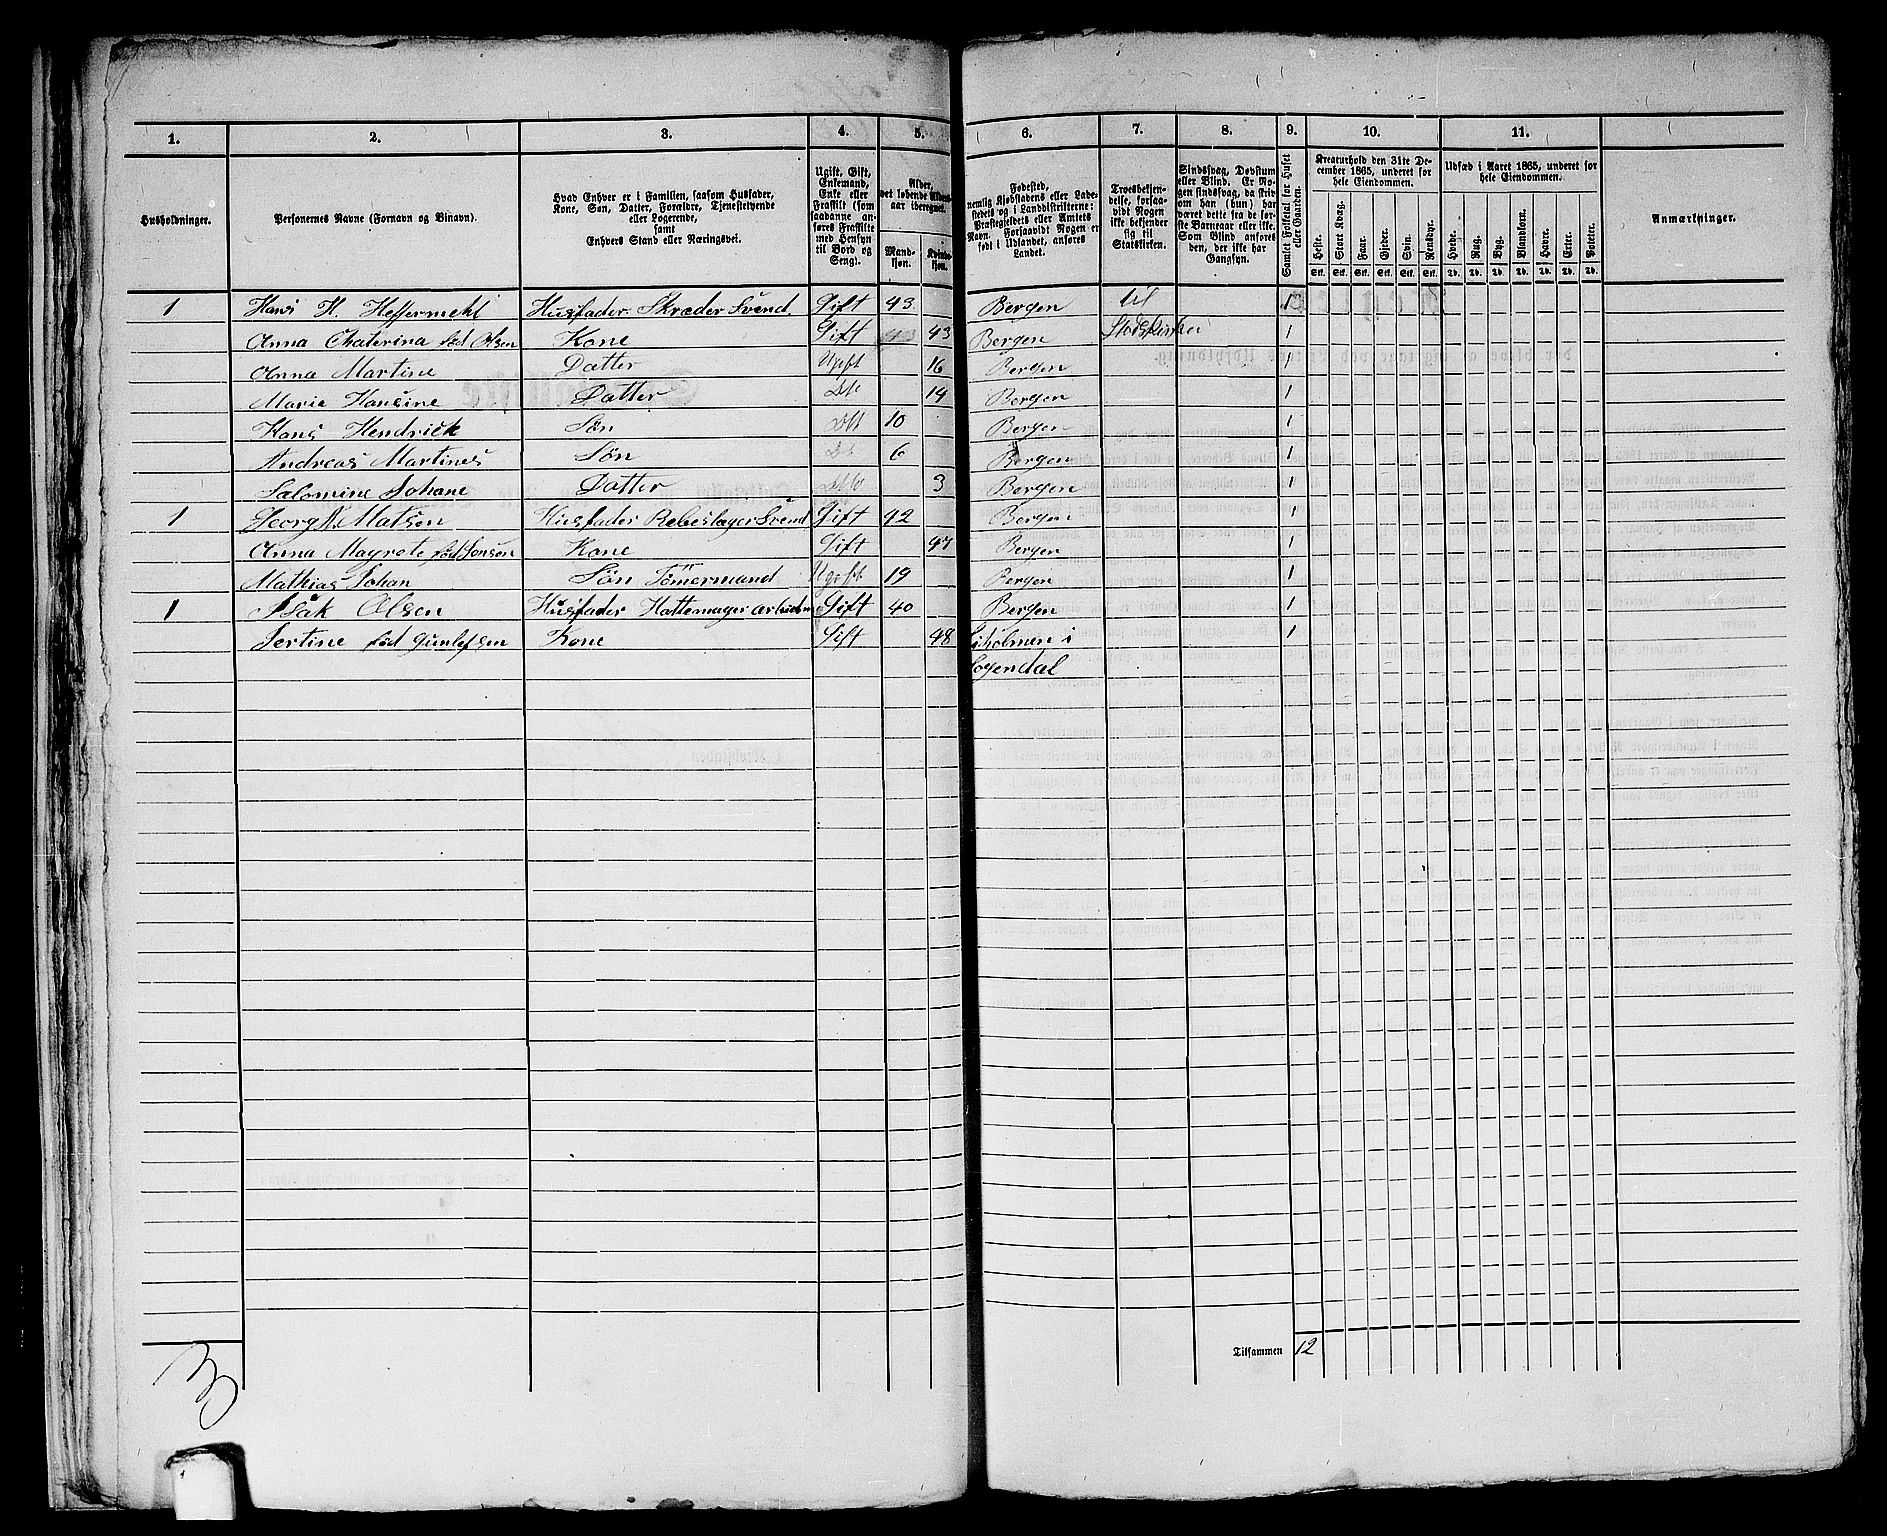 1. 2. 3. 4. 5. 6. 7. 8. 9. 10. 11.
Husholdninger.
Personernes Navne (Fornavn og Binavn).
Hvad Enhver er i Familien, saasom Husfader,
Kone, Søn, Datter, Forældre, Tjenestetyende
eller Logerende,
samt
Enhvers Stand eller Næringsvei.
Ugift, Gift,
Enkemand,
Enke eller
Fraskilt (som
saadanne an-
føres Fraskilte
med Hensyn
til Bord og
Seng).
Alder,
det løbende Alders-
aar iberegnet.
Mand-
kjøn.
Kvinde-
kjøn.
Fødested,
nemlig Kjøbstadens eller Lade-
stedets og i Landdistrikterne:
Præstegjeldets eller Amtets
Navn. Forsaavidt Nogen er
født i Udlandet, anføres
Landet.
Troesbekjen-
delse, forsaa-
vidt Nogen
ikke bekjender
sig til
Statskirken.
Sindssvag, Døvstum
eller Blind. Er No-
gen sindssvag, da skrives
om han (hun) har
været dette fra de før-
ste Barneaar eller ikke.
Som Blind anføres
den, der ikke har
Gangsyn.
Samlet Folketal for Huset
eller Gaarden.
Kreaturhold den 31te De-
cember 1865, underet for
hele Eiendommen.
Heste. Stort Kvæg. Faar. Gjeder. Svin. Rensdyr.
Stk. Stk. Stk. Stk. Stk. Stk.
Udsæd i Aaret 1865, underet for
hele Eiendommen.
Hvede. Rug. Byg. Blandkorn. Havre. Erter. Poteter.
Td. Td. Td. Td. Td. Td. Td.
Anmærkninger.
1 Hans H. Heffermehl Husfader Skræder Svend Gift 43. Bergen til 1
Anna Chaterina fød Olsen Kone Gift 43 43 Bergen Stadskirken 1
Anna Martine Datter Ugift 16 Bergen 1
Marie Hansine Datter Dt 14 Bergen 1
Hans Hendrick Søn Dt 10 Bergen 1
Andreas Martines Søn Dt 6 Bergen 1
Salomine Johane Datter Dto 3 Bergen 1
1 Georg Matsen Husfader Rebeslager Svend Gift 42 Bergen 1
Anna Magrete fød Jonsen Kone Gift 47 Bergen 1
Mathias Johan Søn Tömermand Ugift 19 Bergen 1
1 Isak Olsen Husfader Hattemager arbeidm Gift 40 Bergen 1
Sertine fød Gunlefsen Kone Gift 48 holmen i 1
ogendal
Tilsammen 12
3